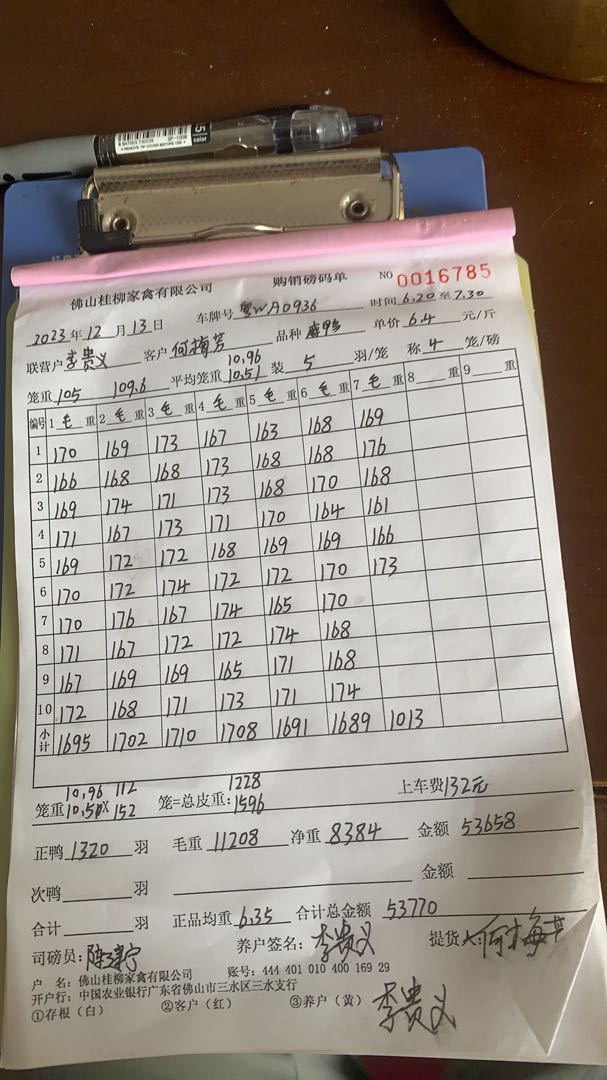 15 color
6 947503 730239 GP-1008
• REMOVE TIP COVER BEFORE USE •
佛山桂柳家禽有限公司 购销磅码单 NO 0016785
2023年12月13日 车牌号 粤WA0936 时间 6.20至7.30
联营户 李贵义 客户 何梅芳 品种 麻鸭 单价 6.4 元/斤
10.96
笼重 105 109.6 平均笼重 10.51 装 5 羽/笼 称 4 笼/磅
编号 1 毛 重 2 毛 重 3 毛 重 4 毛 重 5 毛 重 6 毛 重 7 毛 重 8 重 9 重
1 170 169 173 167 163 168 169
2 166 168 168 173 168 168 176
3 169 174 171 173 168 170 168
4 171 167 173 171 170 164 161
5 169 172 172 168 169 169 166
6 170 172 174 172 172 170 173
7 170 176 167 174 165 170
8 171 167 172 172 174 168
9 167 169 169 165 171 168
10 172 168 171 173 171 174
小计 1695 1702 1710 1708 1691 1689 1013
10.96 112 1228
笼重 10.51 X 152 笼=总皮重: 1596 上车费 132元
正鸭 1320 羽 毛重 11208 净重 8384 金额 53658
次鸭 羽 金额
合计 羽 正品均重 6.35 合计总金额 53770
司磅员: 养户签名: 李贵义 提货人 何梅芳
户 名: 佛山桂柳家禽有限公司 账号: 444 401 010 400 169 29
开户行: 中国农业银行广东省佛山市三水区三水支行
①存根(白) ②客户(红) ③养户(黄) 李贵义